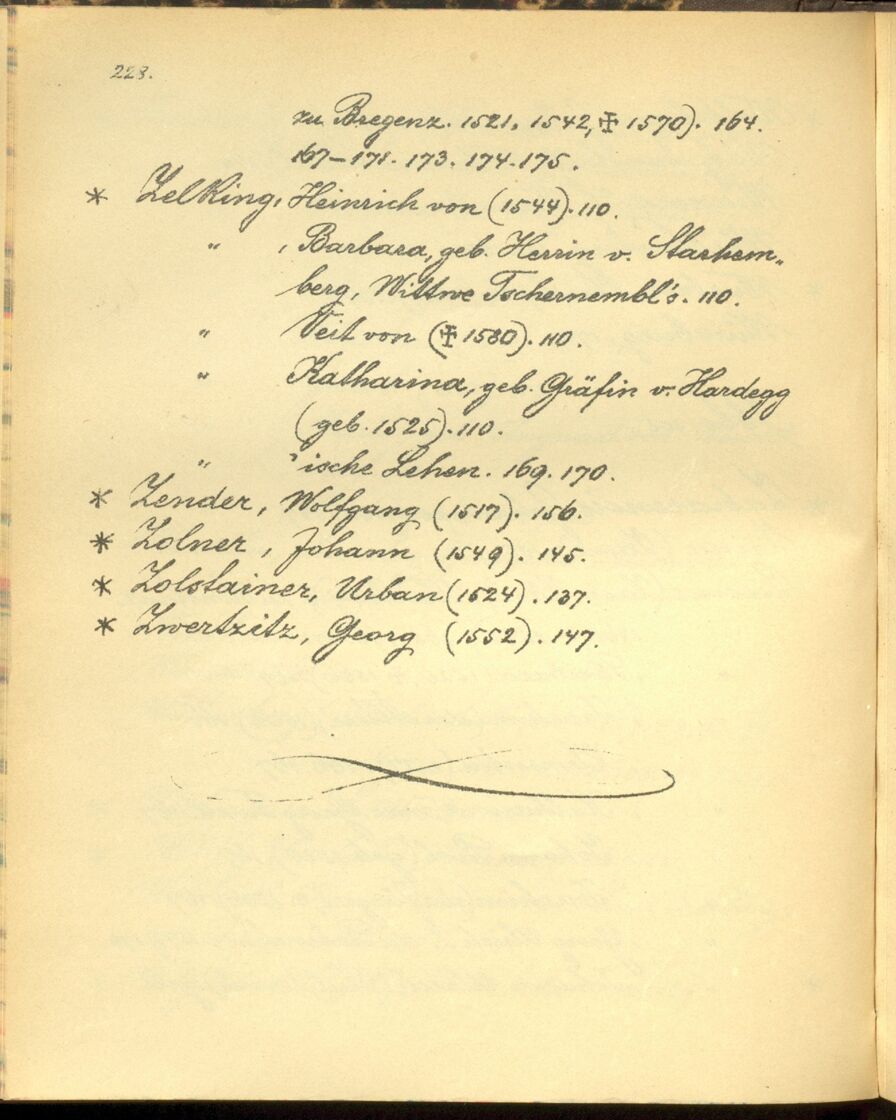 228.
zu Bregenz. 1521, 1542, ✠ 1570). 164.
167–171. 173. 174. 175.
* Zelking, Heinrich von (1544). 110.
" , Barbara, geb. Herrin v. Starhem-
berg, Wittwe Tschernembl's. 110.
" Veit von (✠ 1580). 110.
" Katharina, geb. Gräfin v. Hardegg
(geb. 1525). 110.
" 'ische Lehen. 169. 170.
* Zender, Wolfgang (1517). 156.
* Zolner, Johann (1549). 145.
* Zolstainer, Urban (1524). 137.
* Zwertzitz, Georg (1552). 147.